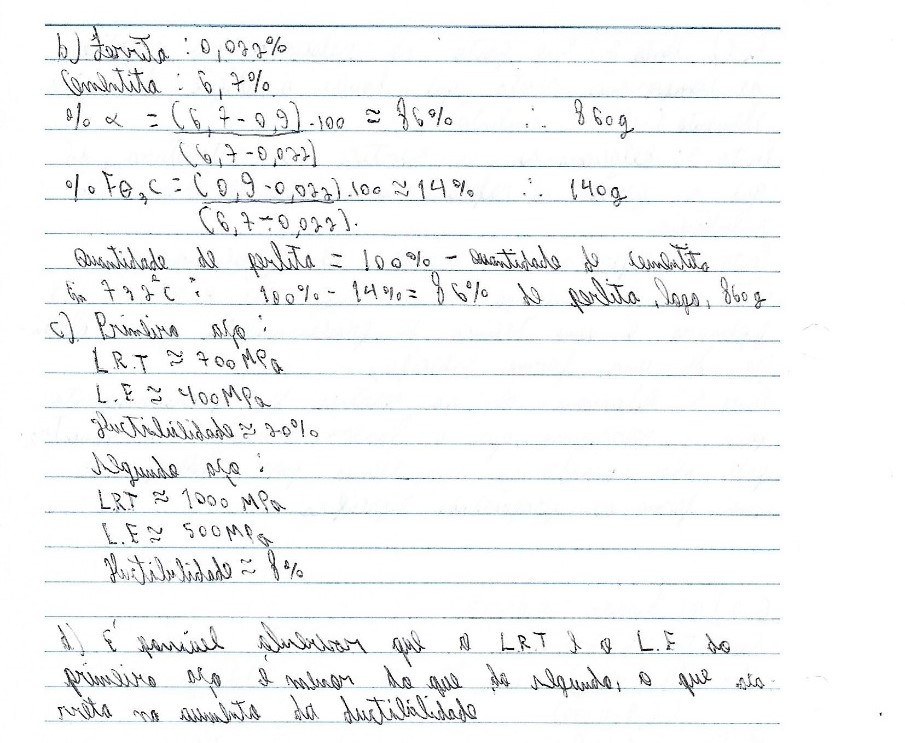 b) Ferrita : 0,022%
Cementita : 6,7%
% α = (6,7 - 0,9) . 100 ≈ 86% ∴ 860g
(6,7 - 0,022)
% Fe3C = (0,9 - 0,022) . 100 ≈ 14% ∴ 140g
(6,7 - 0,022).
Quantidade de perlita = 100% - quantidade de cementita
Em 732°C : 100% - 14% = 86% de perlita, logo, 860g
c) Primeiro aço :
L.R.T ≈ 700 MPa
L.E ≈ 400 MPa
Ductibilidade ≈ 20%
Segundo aço :
LRT ≈ 1000 MPa
L.E ≈ 500 MPa
Ductibilidade ≈ 8%
d) É possível que o LRT e o L.E do
primeiro aço é menor do que do segundo, o que
no aumento da ductibilidade